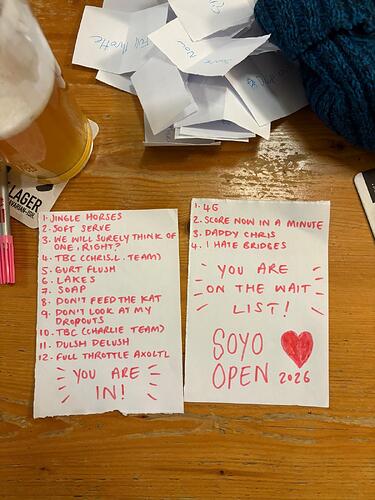 Full Throttle
Now
LAGER
BAVARIAN-
1. JINGLE HORSES
2. SOFT SERVE
3. WE WILL SURELY THINK OF
ONE, RIGHT?
4. TBC (CHRIS.L. TEAM)
5. GURT FLUSH
6. LAKES
7. SOAP
8. DON'T FEED THE KAT
9. DON'T LOOK AT MY
DROPOUTS
10. TBC (CHARLIE TEAM)
11. DULSH DELUSH
12. FULL THROTTLE AXOLTL
YOU ARE
IN!
1. 4G
2. SCORE NOW IN A MINUTE
3. DADDY CHRIS
4. I HATE BRIDGES
YOU ARE
ON THE WAIT
LIST!
SOYO
OPEN 2026